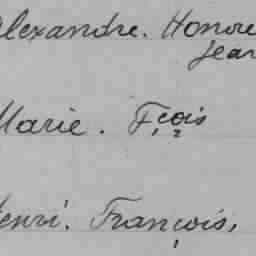 Alexandre. Honoré
Jean
Marie. Fçois
Henri. François,